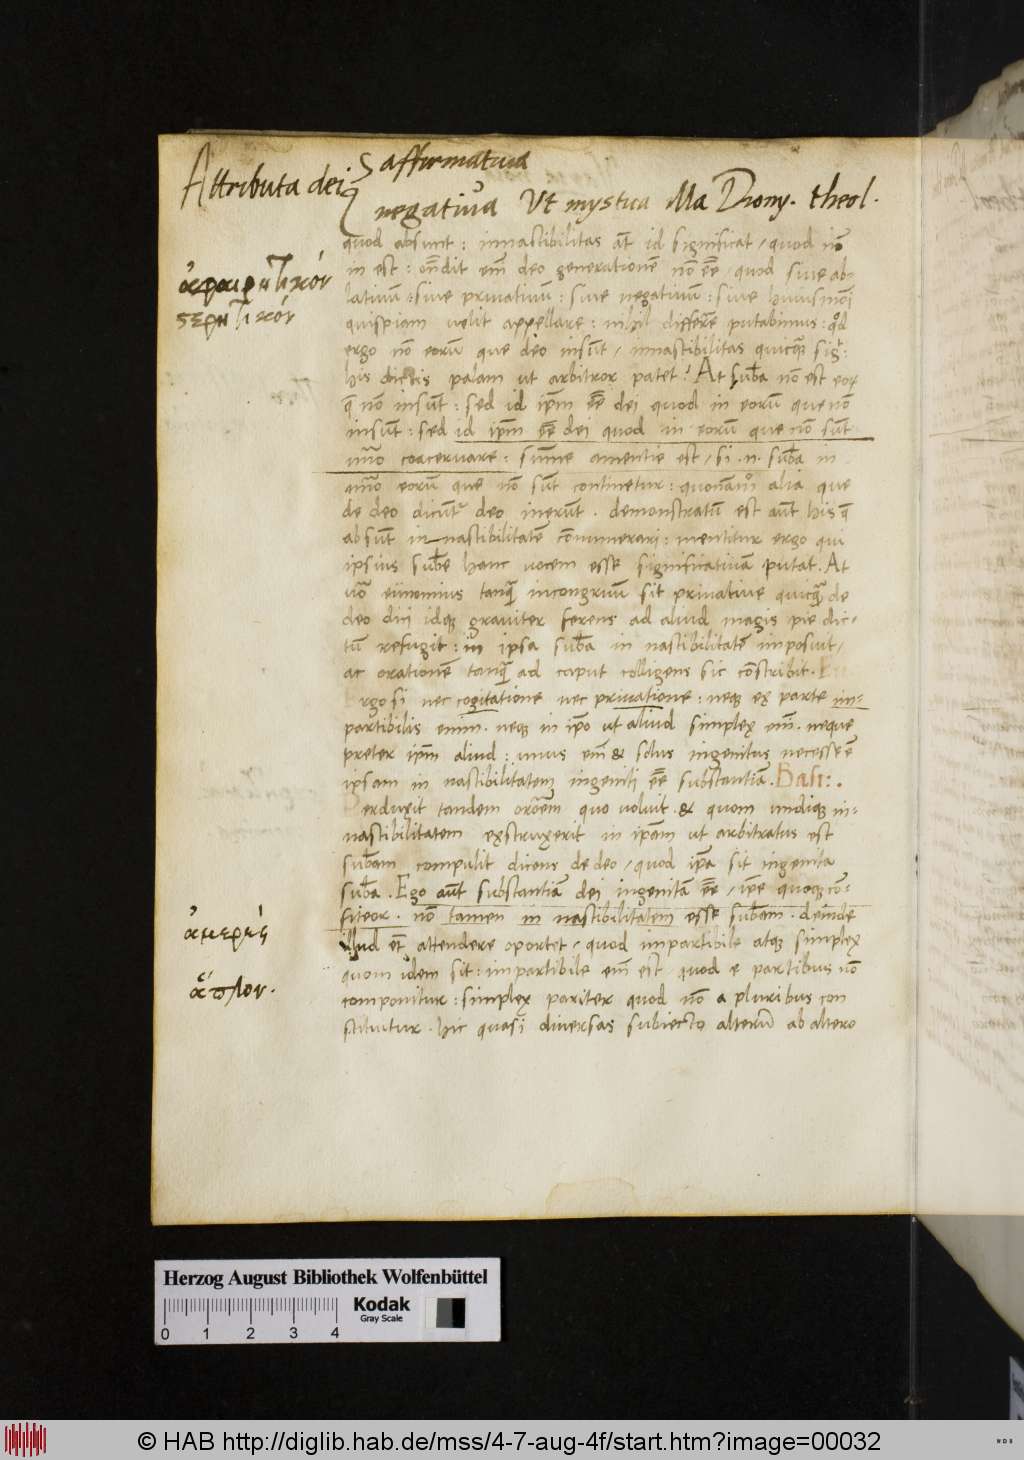 Attributa dei affirmatiua
negatiua Ut mystica Diony. theol.
quod absunt: innascibilitas aūt id significat, quod nō
in est: onēdit em̄ deo generationē nō eē, quod siue ab-
latiuū: siue priuatiuū: siue negatiuū: siue huiusmōi
quispiam uelit appellare: nihil differre putabimus: qd̄
ergo nō eorū que deo insūt, innascibilitas quicq̄
his dictis palam ut arbitror patet: At sub̄a nō est eor
q̄ nō insūt: sed id ip̄m eē dei quod in eorū que nō
insūt: sed id ip̄m eē dei quod in eorū que nō sūt
coaceruare: sūme amentie est, si .n. sub̄a in
eorū que nō sūt continetur: alia que
de deo dicūtur deo inerūt. demonstratū est aūt his q̄
absūt in nascibilitatē cōnumerari: mentitur ergo qui
ipsius sub̄e hanc uocem esse significatiuā putat. At
eunomius tanq̄ incongruū sit priuatiue quicq̄ de
deo dici idq; grauiter ferens ad aliud magis pie dic-
tū refugit: in ipsa sub̄a in nascibilitatē imposuit,
ac orationē tanq̄ ad caput colligens sic cōscribit.
Ergo si nec cogitatione nec priuatione: neq; ex parte im-
partibilis enim. neq; in ip̄o ut aliud simplex em̄. neque
preter ip̄m aliud: unus em̄ & solus ingenitus necesse ē
ipsam in nascibilitatem ingeniti eē substantiā. Basi:.
Perduxit tandem orōem quo uoluit. & quom undiq; in-
nascibilitatem exstruxerit in ip̄am ut arbitratus est
sub̄am compulit dicens de deo, quod ip̄a sit ingenita
sub̄a. Ego aūt substantiā dei ingenitā eē, ip̄e quoq; cō-
fiteor. nō tamen in nascibilitatem esse sub̄am. deinde
illud et̄ attendere oportet, quod impartibile atq; simplex
quom idem sit: impartibile em̄ est quod e partibus nō
componitur: simplex pariter quod nō a pluribus con
stituitur. hic quasi diuersas subiecto alterū ab altero
ἀφαιρητικόν
στερητικόν
ἀμερές
ἁπλοῦν.
Herzog August Bibliothek Wolfenbüttel
0 1 2 3 4
Kodak
Gray Scale
© HAB http://diglib.hab.de/mss/4-7-aug-4f/start.htm?image=00032